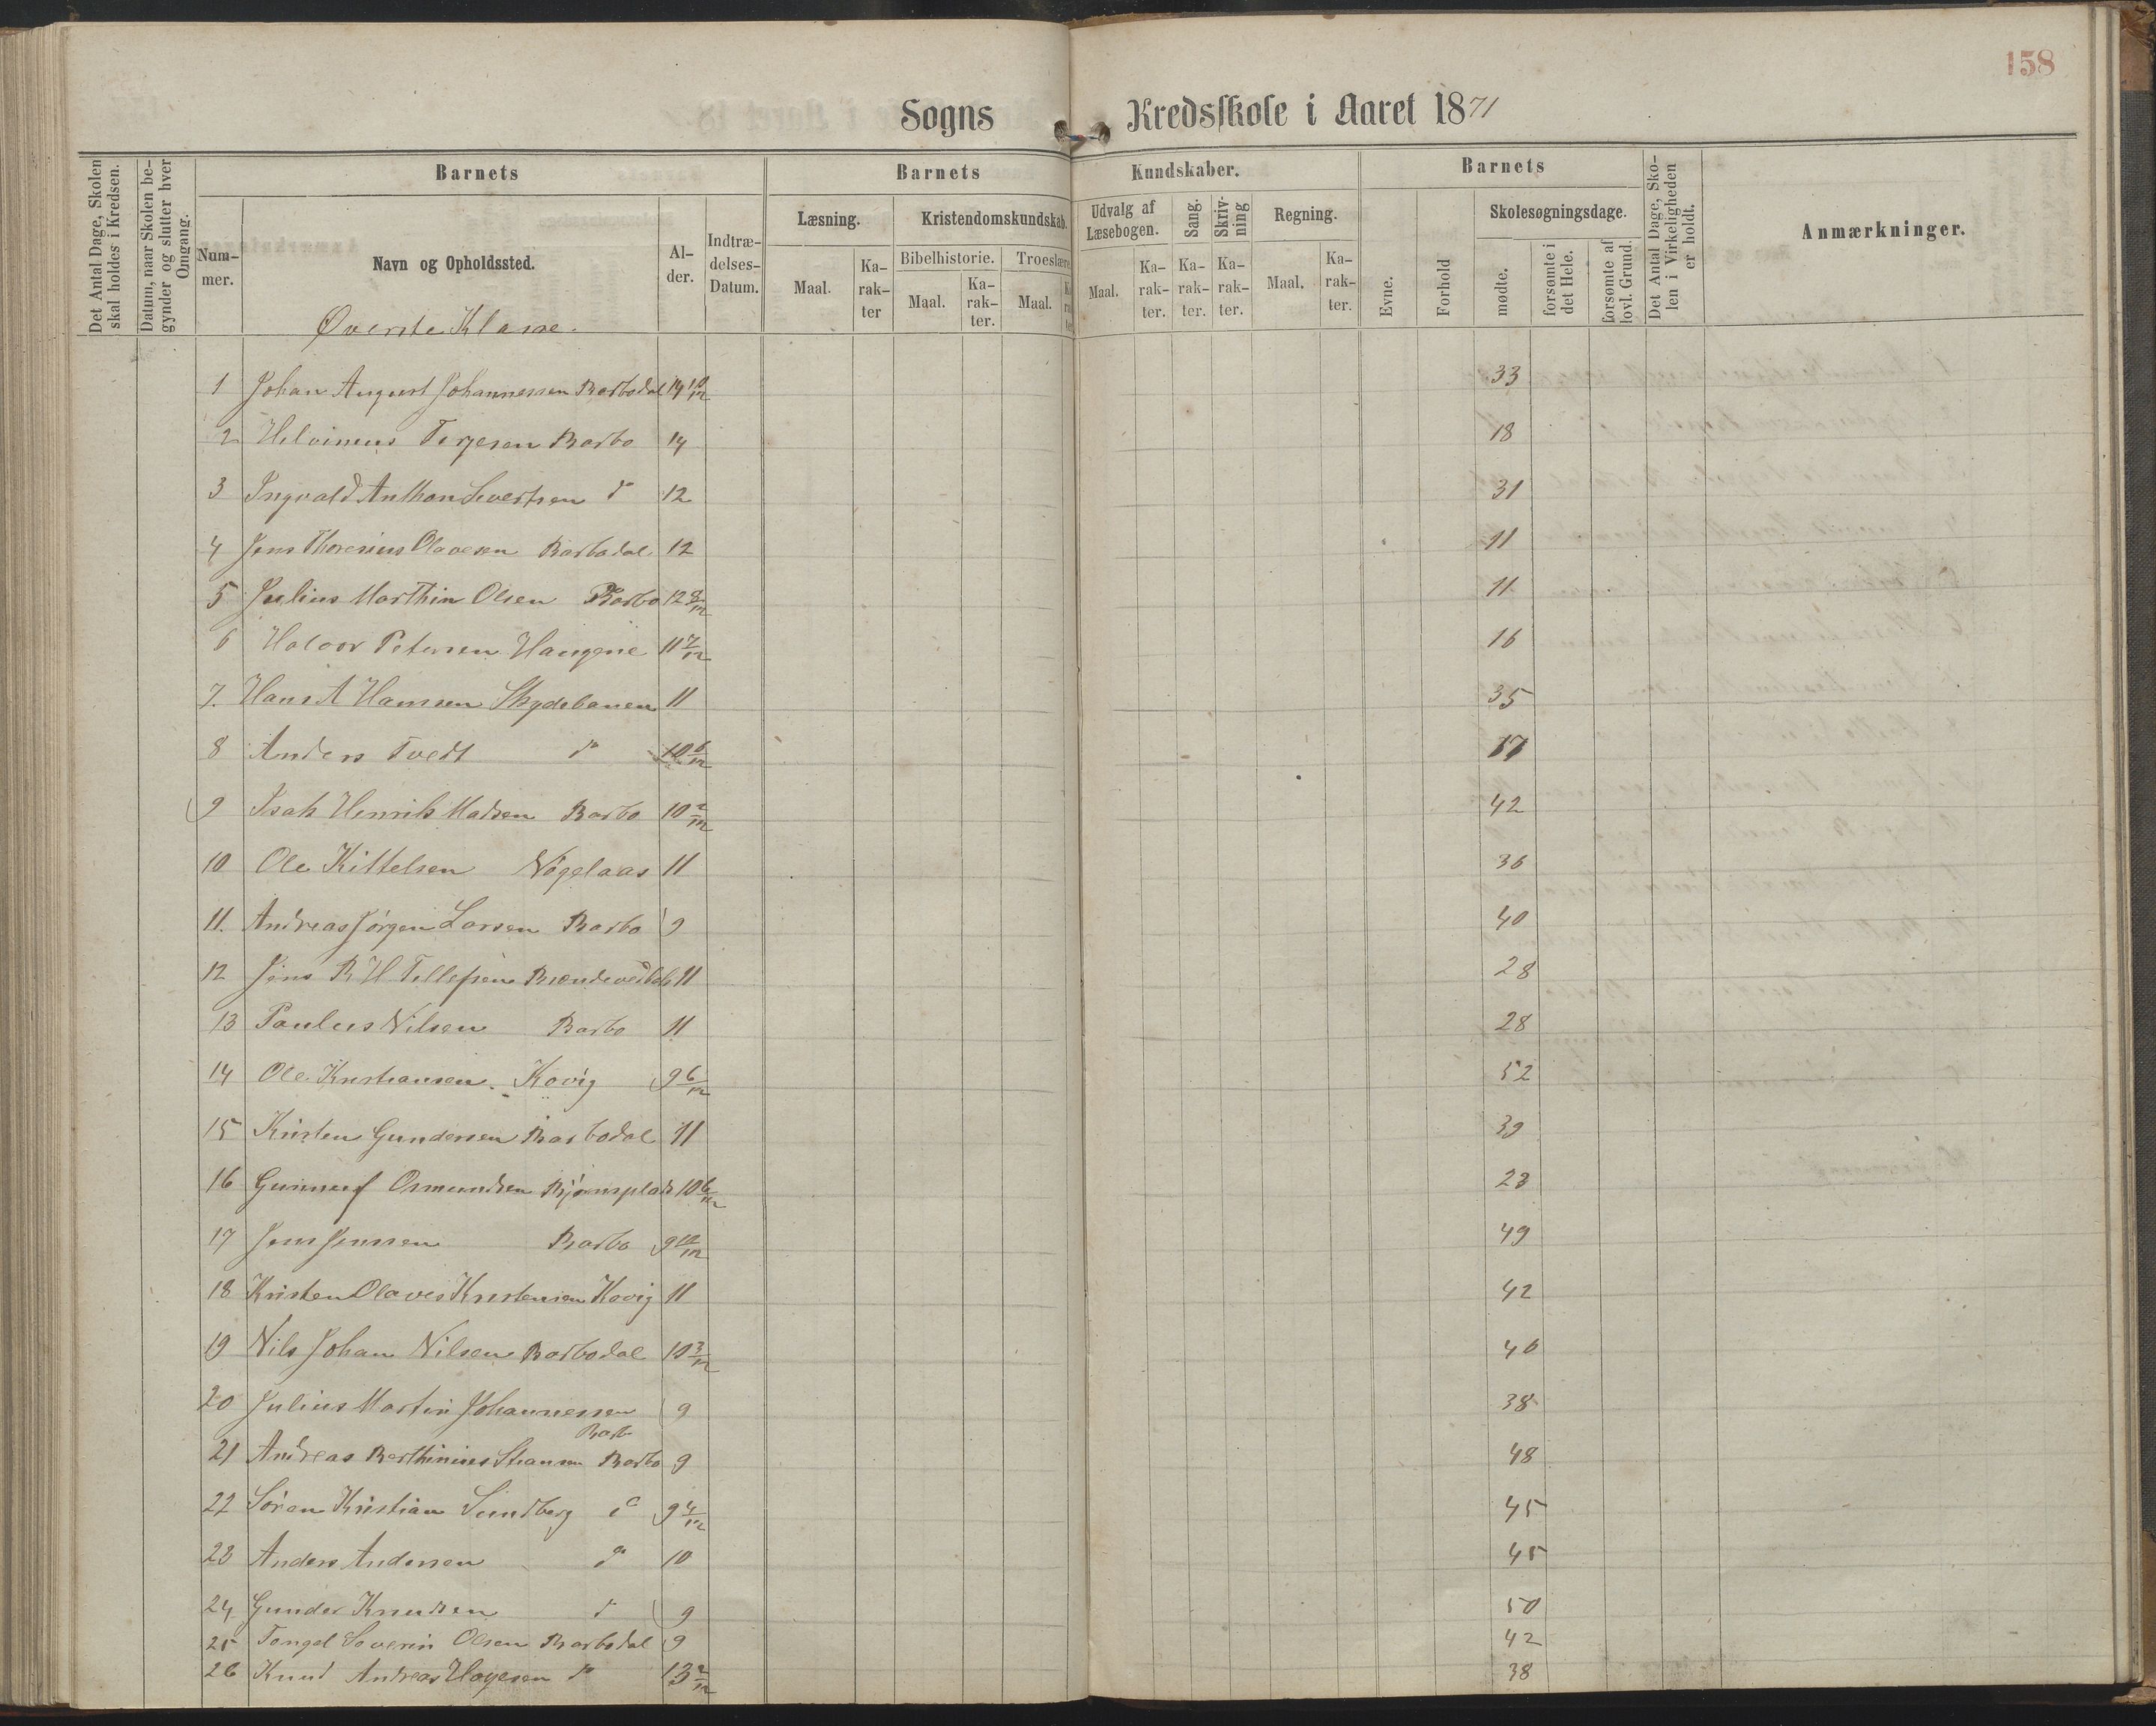 158
Sogns Kredsskole i Aaret 1871
Det Antal Dage, Skolen skal holdes i Kredsen.
Datum, naar Skolen begynder og slutter hver Omgang.
Barnets
Nummer.
Navn og Opholdssted.
Alder.
Indtrædelses-Datum.
Barnets Kundskaber.
Læsning.
Maal.
Karakter
Kristendomskundskab.
Bibelhistorie.
Maal.
Karakter.
Troeslære.
Maal.
Udvalg af Læsebogen.
Maal.
Karakter.
Sang.
Karakter.
Skrivning
Karakter.
Regning.
Maal.
Karakter.
Barnets
Evne.
Forhold
Skolesøgningsdage.
mødte.
forsømte i det Hele.
forsømte af lovl. Grund.
Det Antal Dage, Skolen i Virkeligheden er holdt.
Anmærkninger.
Øverste Klasse.
1 Johan August Johannessen Barbodal 14 10/12 33
2 Terjesen Barbo 14 18
3 Ingvald Anthon Sivertsen do 12 31
4 Jens Thoresius Olavesen Barbodal 12 11
5 Julius Marthin Olsen Barbo 12 8/12 11
6 Halvor Petersen Haugene 11 7/12 16
7. Hans A Hanssen Skydebanen 11 35
8 Anders Tvedt do 10 6/12 17
9 Isak Henrik Madsen Barbo 10 2/12 42
10 Ole Kittelsen Nøgelaas 11 36
11. Andreas Jørgen Larsen Barbo 9 40
12 Jens B H Tellefsen 11 28
13 Paulus Nilsen Barbo 11 28
14 Ole Kristiansen. Kovig 9 6/12 52
15 Kristen Gundersen Barbodal 11 39
16 Gunneuf Osmundsen Bjørnsplads 10 6/12 23
17 Jens Jenssen Barbo 9 10/12 49
18 Kristen Olaves Kristensen Kovig 11 42
19 Nils Johan Nilsen Barbodal 10 3/12 46
20 Julius Martin Johannessen 9 38
Barbo
21 Andreas Berthinius Barbo 9 48
22 Søren Kristian Sundberg do 9 4/12 45
23 Anders Andersen do 10 45
24 Gunder Knudsen do 9 50
25 Tongel Severin Olsen Barbodal 9 42
26 Knud Andreas do 13 2/12 38